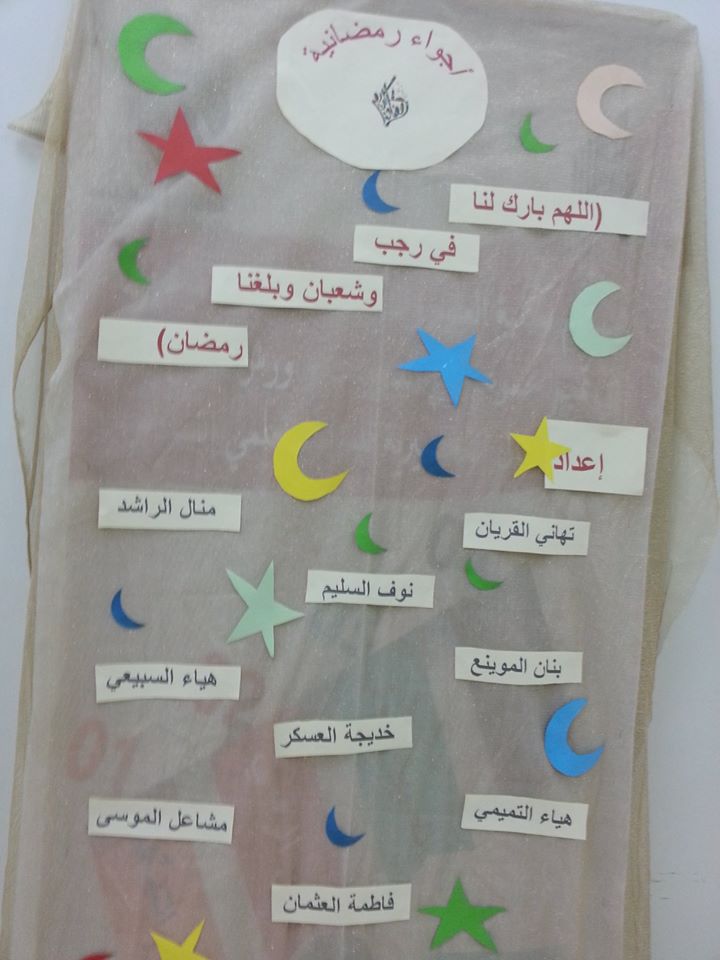 أجواء رمضانية
(اللهم بارك لنا
في رجب
وشعبان وبلغنا
رمضان)
إعداد
تهاني القريان
منال الراشد
نوف السليم
بنان الموينع
هياء السبيعي
خديجة العسكر
هياء التميمي
مشاعل الموسى
فاطمة العثمان